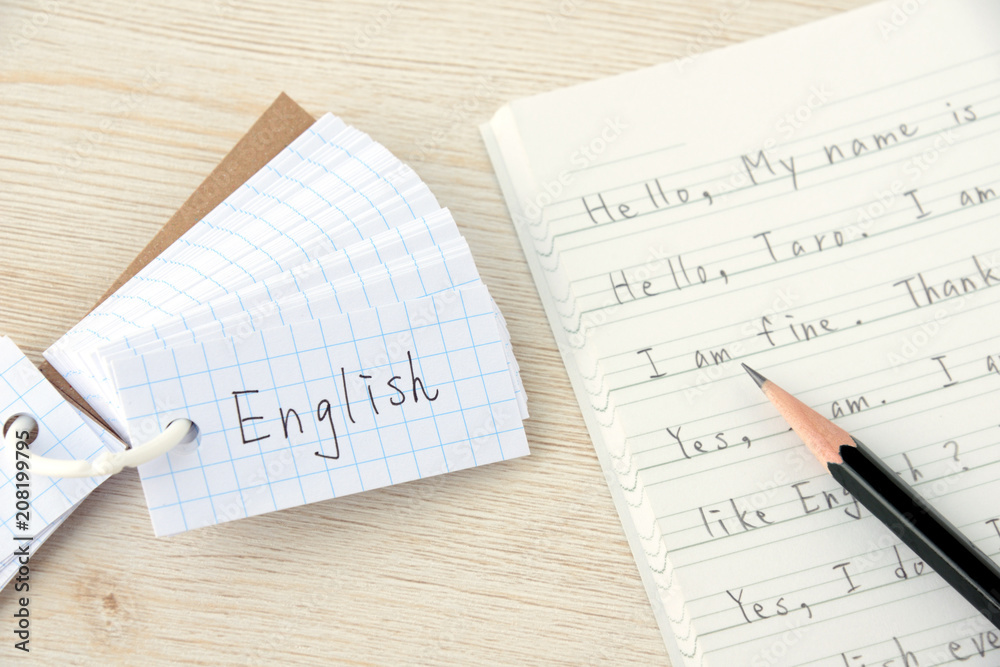 English
Hello, My name is
Hello, Taro. I am
I am fine. Thank
Yes, I am. I a
like English?
Yes, I do
lish eve
Adobe Stock | #208199795